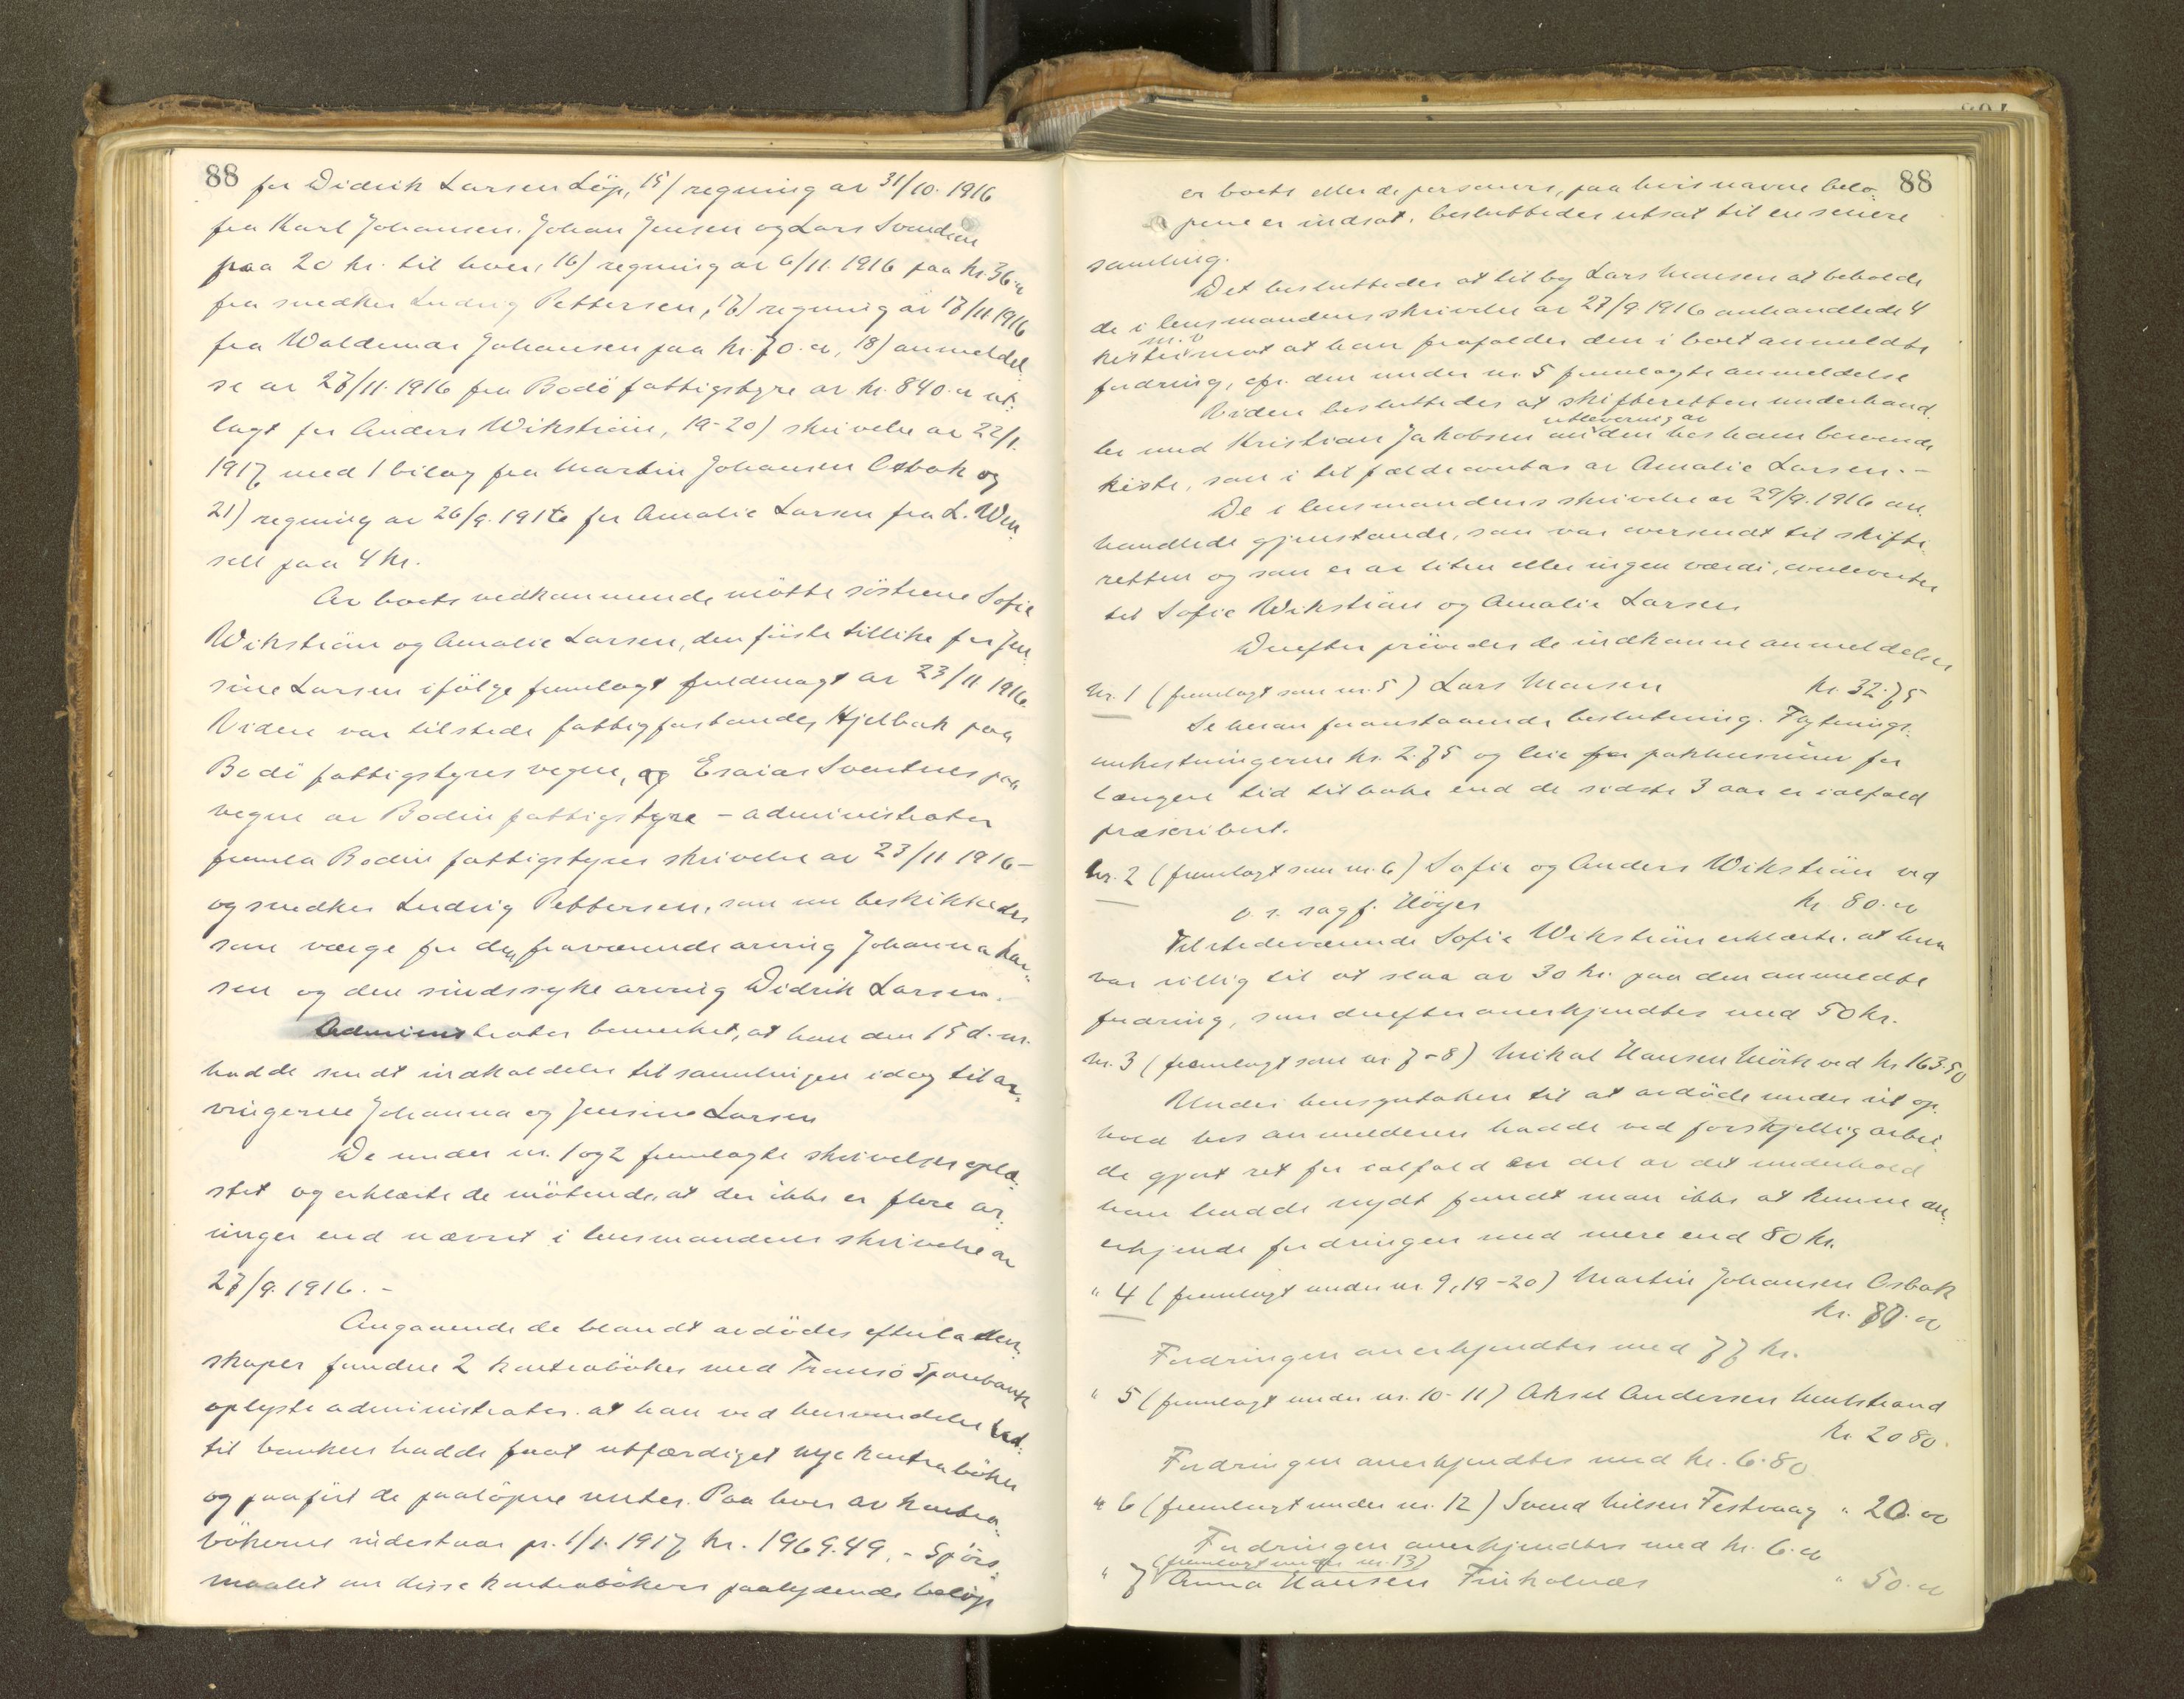 88
for Didrik Larsen Löp, 15) regning av 31/10. 1916
fra Karl Johansen. Johan Jensen og Lars Svendsen
paa 20 kr. til hver, 16) regning av 6/11. 1916 paa kr. 36.00
fra snedker Ludvig Pettersen, 17) regning av 17/11 1916
fra Waldemar Johansen paa kr. 70.00, 18) anmeldel
se av 27/11. 1916 fra Bodö fattigstyre av kr. 840.00 ut
lagt for Anders Wikström, 19-20) skrivelse av 22/1.
1917 med 1 bilag fra Martin Johansen Osbak og
21) regning av 26/9. 1916 for Amalie Larsen fra L. Wen
sell paa 4 kr.
Av boets vedkommende mötte söstrene Sofie
Wikström og Amalie Larsen, den förste tillike for Jen
sine Larsen ifölge fremlagt fuldmagt av 23/11 1916.
Videre var tilstede fattigforstander Hjelbak paa
Bodö fattigstyres vegne, og Esaias Svartnes paa
vegne av Bodin fattigstyre - administrator
fremla Bodin fattigstyres skrivelse av 23/11 1916 -
og snedker Ludvig Pettersen, som nu beskikkedes
som værge for den fraværende arving Johanna Lar
sen og den sindssyke arving Didrik Larsen.
Administrator bemerket, at han den 15 d. m.
hadde sendt indkaldelse til samlingen idag til ar
vingerne Johanna og Jensine Larsen
De under nr. 1 og 2 fremlagte skrivelser oplæ
stes og erklærte de mötende, at der ikke er flere ar
vinger end nævnt i lensmandens skrivelse av
27/9. 1916. -
Angaaende de blandt avdödes efterladen
skaper fundne 2 kontraböker med Tromsö Sparebank
oplyste administrator. at han ved henvendelse
til banken hadde faat utfærdiget nye kontraböker
og paafört de paalöpne renter. Paa hver av kontra
bökerne indestaar pr. 1/1. 1917 kr. 1969.49. - Spörs
maalet om disse kontrabökers paalydende belöp
88
er boets eller de personers, paa hvis navne belö
pene er indsat, besluttedes utsat til en senere
samling.
Det besluttedes at tilby Lars Monsen at beholde
de i lensmandens skrivelse av 27/9. 1916 omhandlede 4
m. v.
kister mot at han frafalder den i boet anmeldte
fordring, cfr. den under nr. 5 fremlagte anmeldelse
Videre besluttedes at skifteretten underhand
utlevering av
ler med Kristian Jakobsen om den hos ham beroende
kiste, som i tilfælde overtas av Amalie Larsen. -
De i lensmandens skrivelse av 29/9. 1916 om
handlede gjenstande, som var oversendt til skifte
retten og som er av liten eller ingen værdi, overleverter
til Sofie Wikström og Amalie Larsen
Derefter prövedes de indkomne anmeldelser
Nr. 1 (fremlagt som nr. 5) Lars Monsen kr. 32.75
Se herom foranstaaende beslutning. Flytnings
omkostningerne kr. 2.75 og leie for pakhusrum for
længere tid tilbake end de sidste 3 aar er ialfald
præscribert.
Nr. 2 (fremlagt som nr. 6) Sofie og Anders Wikström ved
o. r. sagf. Höyer kr 80.00
Tilstedeværende Sofie Wikström erklærte. at hun
var villig til at slaa av 30 kr. paa den anmeldte
fordring, som derefter anerkjendtes med 50 kr.
Nr. 3 (fremlagt som nr 7-8) Mikal Hansen Mörkved kr 163.50
Under hensyntaken til at avdöde under sit op
hold hos anmelderen hadde ved forskjellig arbei
de gjort ret for ialfald en del av det underhold
han hadde nydt fandt man ikke at kunne an
erkjende fordringen med mere end 80 kr.
" 4 (fremlagt under nr. 9, 19-20) Martin Johansen Osbak
kr. 87.00
Fordringen anerkjendtes med 77 kr.
" 5 (fremlagt under nr. 10-11) Aksel Andersen
kr 20 80.
Fordringen anerkjendtes med kr. 6.80
" 6 (fremlagt under nr. 12) Svend Nilsen Festvaag " 20.00
Fordringen anerkjendtes med kr. 6.00
(fremlagt under nr. 13)
" 7 Anna Hansen Finkolnes " 50.00